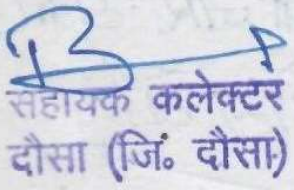 सहायक कलेक्टर
दौसा (जिं० दौसा)